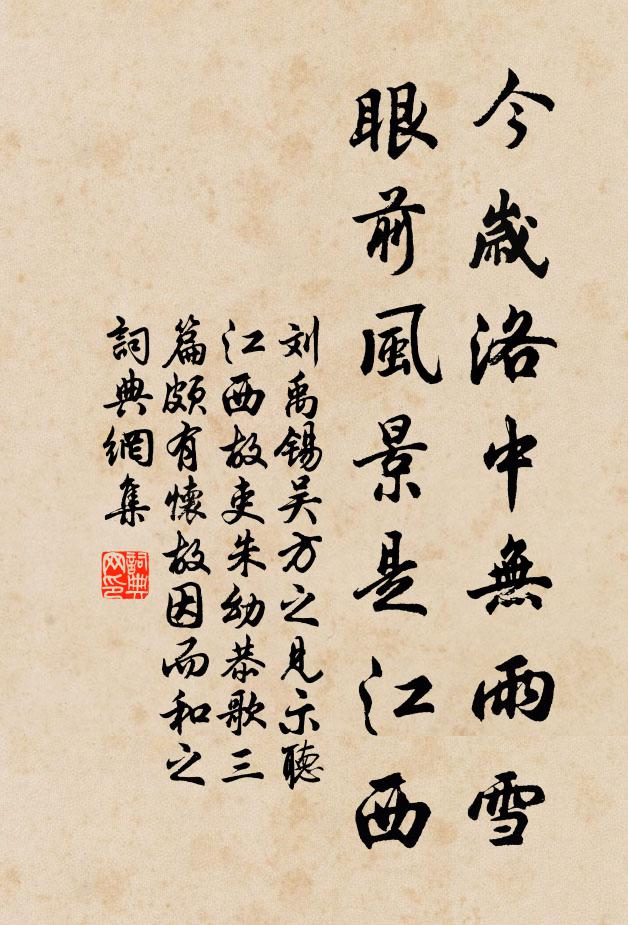 今歲洛中無雨雪
眼前風景是江西
刘禹錫吴方之見示聽
江西故吏朱幼恭歌三
篇頗有懷故因而和之
詞典網集
詞典网印